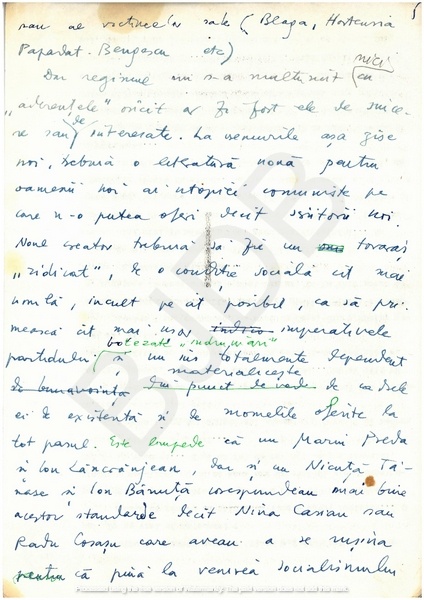 5
sau ale victimelor sale (Blaga, Hortensia
Papadat-Bengescu etc)
Dar regimul nu s-a mulțumit nici cu
„aderențele" oricît ar fi fost ele de since-
re sau de interesate. La vremurile așa zise
noi, trebuia o literatură nouă pentru
oamenii noi ai utopiei comuniste pe
care n-o putea oferi decît scriitorii noi.
Noul creator trebuia să fie un tovarăș
„ridicat", de o condiție socială cît mai
umilă, incult pe cît posibil, ca să pri-
mească cît mai ușor imperativele
botezate „îndrumări"
partidului și un ins totalmente dependent
materialicește
de bunăvoința din punct de vedere de cadrele
ei de existență și de momelile oferite la
tot pasul. Este limpede că un Marin Preda
și Ion Lăncrănjean, dar și un Nicuță Tă-
nase și Ion Bănuță corespundeau mai bine
acestor standarde decît Nina Cassian sau
Radu Cosașu care aveau a se rușina
pentru că pînă la venirea socialismului
BJDB